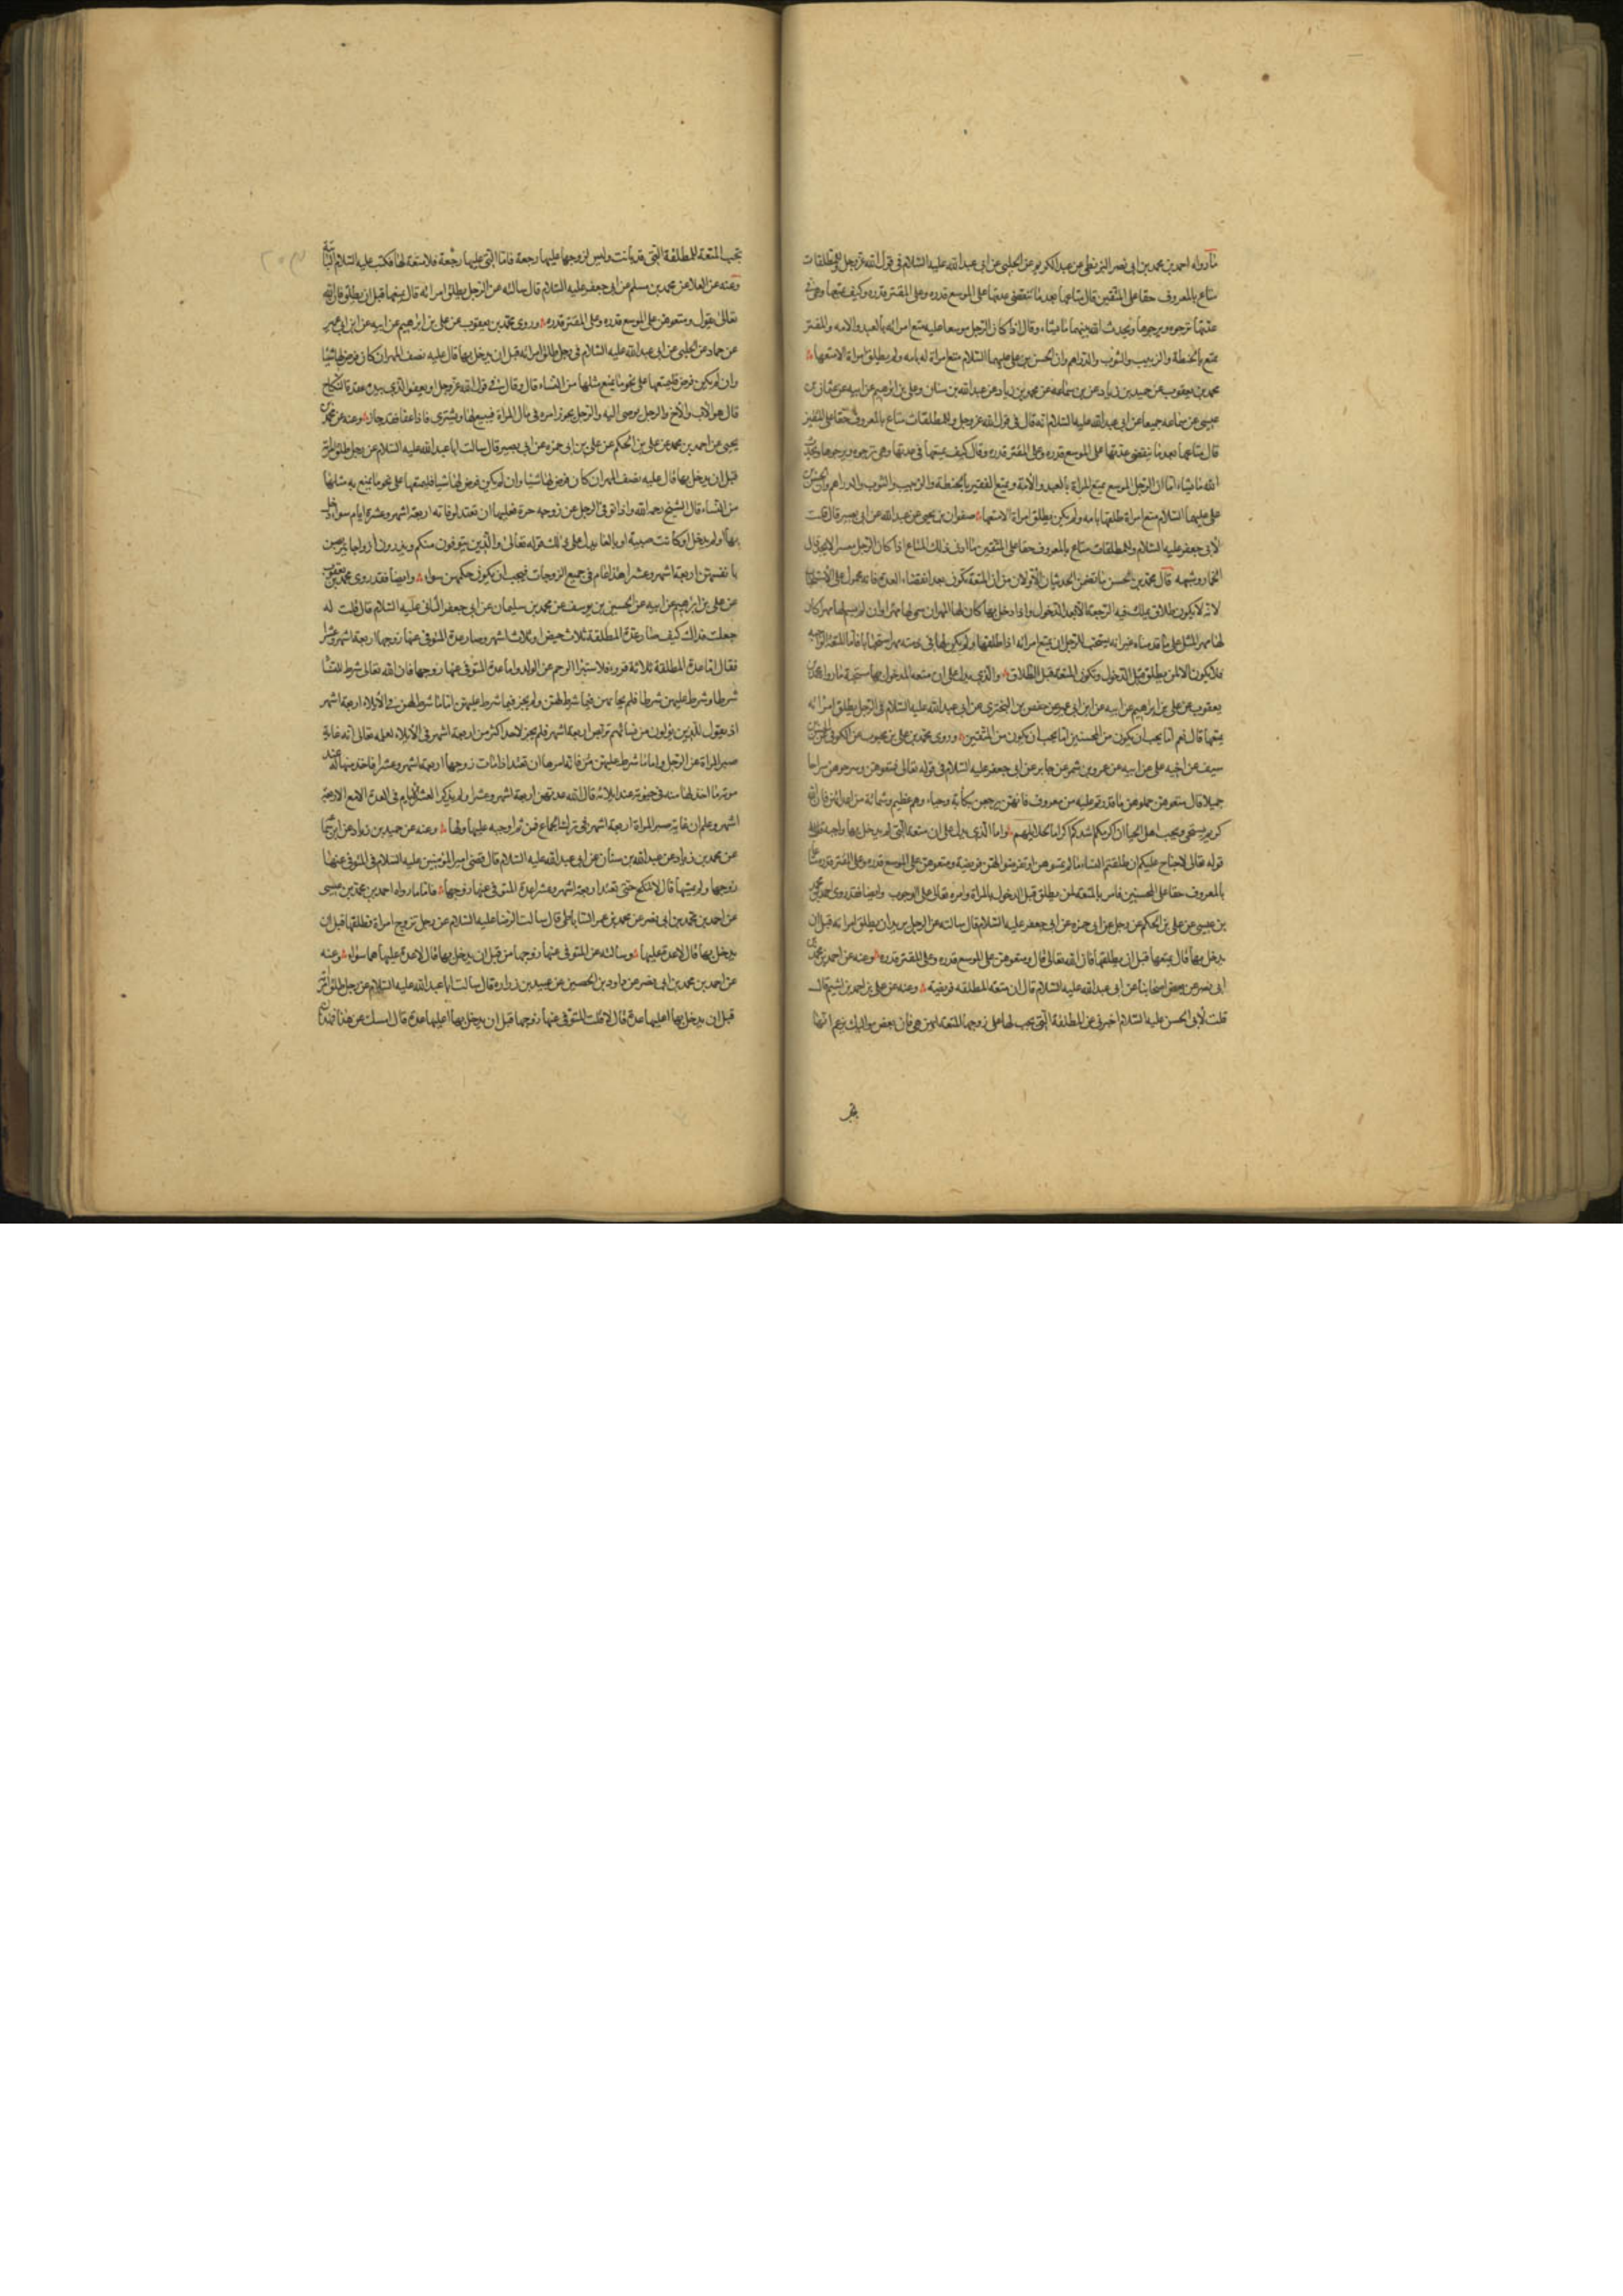 ما رواه احمد بن محمد بن ابى نصر البزنطى عن عبد الكريم عن الحلبى عن ابى عبد الله عليه السلام فى قول الله عز وجل وللمطلقات
متاع بالمعروف حقا على المتقين قال متاعها بعد ما تنقضى عدتها على الموسع قدره وعلى المقتر قدره وكيف يمتعها وهى فى
عدتها ترجوه ويرجوها ويحدث الله بينهما ما يشاء وقال اذا كان الرجل موسعا عليه متع امرأته بالعبد والامه والمقتر
يمتع بالحنطة والزبيب والثوب والدراهم وان الحسن بن على عليهما السلام متع امراة له بامه ولم يطلق امراة الا متعها
محمد بن يعقوب عن حميد بن زياد عن بن سماعه عن محمد بن زياد عن عبد الله بن سنان وعلى بن ابرهيم عن ابيه عن عثمان بن
عيسى عن سماعه جميعا عن ابى عبد الله عليه السلام انه قال فى قول الله عز وجل وللمطلقات متاع بالمعروف حقا على المتقين
قال متاعها بعد ما تنقضى عدتها على الموسع قدره وعلى المقتر قدره وقال كيف يمتعها فى عدتها وهى ترجوه ويرجوها ويحدث
الله ما يشاء اما ان الرجل الموسع يمتع المراة بالعبد والامة ويمتع الفقير بالحنطة والزبيب والثوب والدراهم وان الحسن بن
على عليهما السلام متع امراة طلقها بامه ولم يكن يطلق امراة الا متعها صفوان بن يحيى عن عبد الله عن ابى بصير قال قلت
لابى جعفر عليه السلام وللمطلقات متاع بالمعروف حقا على المتقين ما ادنى ذلك المتاع اذا كان الرجل معسرا لا يجد قال
الخمار وشبهه قال محمد بن الحسن ما تضمن الحديثان الاولان من ان المتعة تكون بعد انقضاء العدة فانه محمول على الاستحباب
لانه لا يكون طلاق يملك فيه الرجعة الا بعد الدخول واذا دخل بها كان لها المهر ان سمى لها مهرا وان لم يسم لها مهرا كان
لها مهر المثل على ما قدمناه غير انه يستحب للرجل ان يمتع امراته اذا طلقها ولم يكن لها فى ذمته مهر استحبابا فاما المتعة الواجبه
فلا يكون الا لمن يطلق قبل الدخول وتكون المتعة قبل الطلاق والذى يدل على ان متعه المدخول بها مستحبة ما رواه محمد بن
يعقوب عن على بن ابراهيم عن ابيه عن ابن ابى عمير عن حفص بن البخترى عن ابى عبد الله عليه السلام فى الرجل يطلق امراته
يمتعها قال نعم اما يحب ان يكون من المحسنين اما يحب ان يكون من المتقين وروى محمد بن على بن محبوب عن الكوفى عن الحسن بن
سيف عن اخيه على عن ابيه عن عمرو بن شمر عن جابر عن ابى جعفر عليه السلام فى قوله تعالى فمتعوهن وسرحوهن سراحا
جميلا قال متعوهن حملوهن ما قدرتم عليه من معروف فانهن يرجعن بكآبة وحياء وهم عظيم وشماتة من اعدائهن فان الله
كريم يستحيى ويحب اهل الحياء ان اكرمكم اشدكم اكراما لحلايلهم واما الذى يدل على ان متعة التى لم يدخل بها واجبه
قوله تعالى لا جناح عليكم ان طلقتم النساء ما لم تمسوهن او تفرضوا لهن فريضة ومتعوهن على الموسع قدره وعلى المقتر قدره متاعا
بالمعروف حقا على المحسنين فامر بالمتعه لمن يطلق قبل الدخول بالمراة وامره تعالى على الوجوب وايضا فقد روى احمد بن محمد
بن عيسى عن على بن الحكم عن رجل عن ابى حمزه عن ابى جعفر عليه السلام قال سالته عن الرجل يريد ان يطلق امراته قبل ان
يدخل بها قال يمتعها قبل ان يطلقها فان الله تعالى قال ومتعوهن على الموسع قدره وعلى المقتر قدره وعنه عن احمد بن محمد بن
ابى نصر عن بعض اصحابنا عن ابى عبد الله عليه السلام قال ان متعة المطلقه فريضة وعنه عن على بن احمد بن اشيم قال
قلت لابى الحسن عليه السلام اخبرنى عن المطلقة التى يجب لها على زوجها المتعة ايهن هى فان بعض مواليك يزعم انها
تجب المتعة للمطلقة التى قد بانت وليس لزوجها عليها رجعة فاما التى عليها رجعة فلا متعة لها فكتب عليه السلام البائنة
وعنه عن العلا عن محمد بن مسلم عن ابى جعفر عليه السلام قال سالته عن الرجل يطلق امراته قال يمتعها قبل ان يطلق فان الله
تعالى يقول ومتعوهن على الموسع قدره وعلى المقتر قدره وروى محمد بن يعقوب عن على بن ابراهيم عن ابيه عن ابن ابى عمير
عن حماد عن الحلبى عن ابى عبد الله عليه السلام فى رجل طلق امراته قبل ان يدخل بها قال عليه نصف المهر ان كان فرض لها شيئا
وان لم يكن فرض فليمتعها على نحو ما يمتع مثلها من النساء قال وقال فى قول الله عز وجل او يعفو الذى بيده عقدة النكاح
قال هو الاب والاخ والرجل يوصى اليه والرجل يجوز امره فى مال المراة فيبيع لها ويشترى فاذا عفا فقد جاز وعنه عن محمد بن
يحيى عن احمد بن محمد عن على بن الحكم عن على بن ابى حمزه عن ابى بصير قال سالت ابا عبد الله عليه السلام عن رجل طلق امراة
قبل ان يدخل بها قال عليه نصف المهر ان كان فرض لها شيئا وان لم يكن فرض لها شيا فليمتعها على نحو ما يمتع به مثلها
من النساء قال الشيخ رحمه الله واذا توفى الرجل عن زوجه حرة فعليها ان تعتد لوفاته اربعة اشهر وعشرة ايام سواء دخل
بها او لم يدخل او كانت صبية او بالغا يدل على ذلك قوله تعالى والذين يتوفون منكم ويذرون ازواجا يتربصن
بانفسهن اربعة اشهر وعشرا هذا عام فى جميع الزوجات فيجب ان يكون حكمهن سواء وايضا فقد روى محمد بن يعقوب
عن على بن ابراهيم عن ابيه عن الحسين بن يوسف عن محمد بن سليمان عن ابى جعفر الثانى عليه السلام قال قلت له
جعلت فداك كيف صارعدة المطلقة ثلاث حيض او ثلاث اشهر وصار عدة المتوفى عنها زوجها اربعة اشهر وعشرا
فقال اما عدة المطلقة ثلاثة قروء فلاستبراء الرحم عن الولد واما عدة المتوفى عنها زوجها فان الله تعالى شرط للنساء
شرطا وشرط عليهن شرطا فلم يحابهن فيما شرط لهن ولم يجز فيما شرط عليهن اما ما شرط لهن فى الايلاء اربعة اشهر
اذ يقول للذين يؤلون من نسائهم تربص اربعة اشهر فلم يجز لاحد اكثر من اربعة اشهر فى الايلاء لعلمه تعالى انه غاية
صبر المراة عن الرجل واما ما شرط عليهن فانه امرها ان تعتد اذا مات زوجها اربعة اشهر وعشرا فاخذ منها له عند
موته ما اخذ لها منه فى حيوته عند ايلائه قال الله يتربصن اربعة اشهر وعشرا ولم يذكر العشرة الايام فى العدة الا مع الاربعة
اشهر وعلم ان غاية صبر المراة اربعة اشهر فى ترك الجماع فمن ثم اوجبه عليها ولها وعنه عن حميد بن زياد عن ابن سماعه
عن محمد بن زياد عن عبد الله بن سنان عن ابى عبد الله عليه السلام قال قضى امير المؤمنين عليه السلام فى المتوفى عنها
زوجها ولم يمسها قال لا تنكح حتى تعتد اربعة اشهر وعشرا عدة المتوفى عنها زوجها فاما ما رواه احمد بن محمد بن عيسى
عن احمد بن محمد بن ابى نصر عن محمد بن عمر الساباطى قال سالت الرضا عليه السلام عن رجل تزوج امراة فطلقها قبل ان
يدخل بها قال لا عدة عليها وسالته عن المتوفى عنها زوجها من قبل ان يدخل بها قال لا عدة عليها هما سواء وعنه
عن احمد بن محمد بن ابى نصر عن داود بن الحصين عن عبيد بن زراره قال سالت ابا عبد الله عليه السلام عن رجل طلق امراته
قبل ان يدخل بها اعليها عدة قال لا قلت المتوفى عنها زوجها قبل ان يدخل بها اعليها عدة قال امسك عن هذا